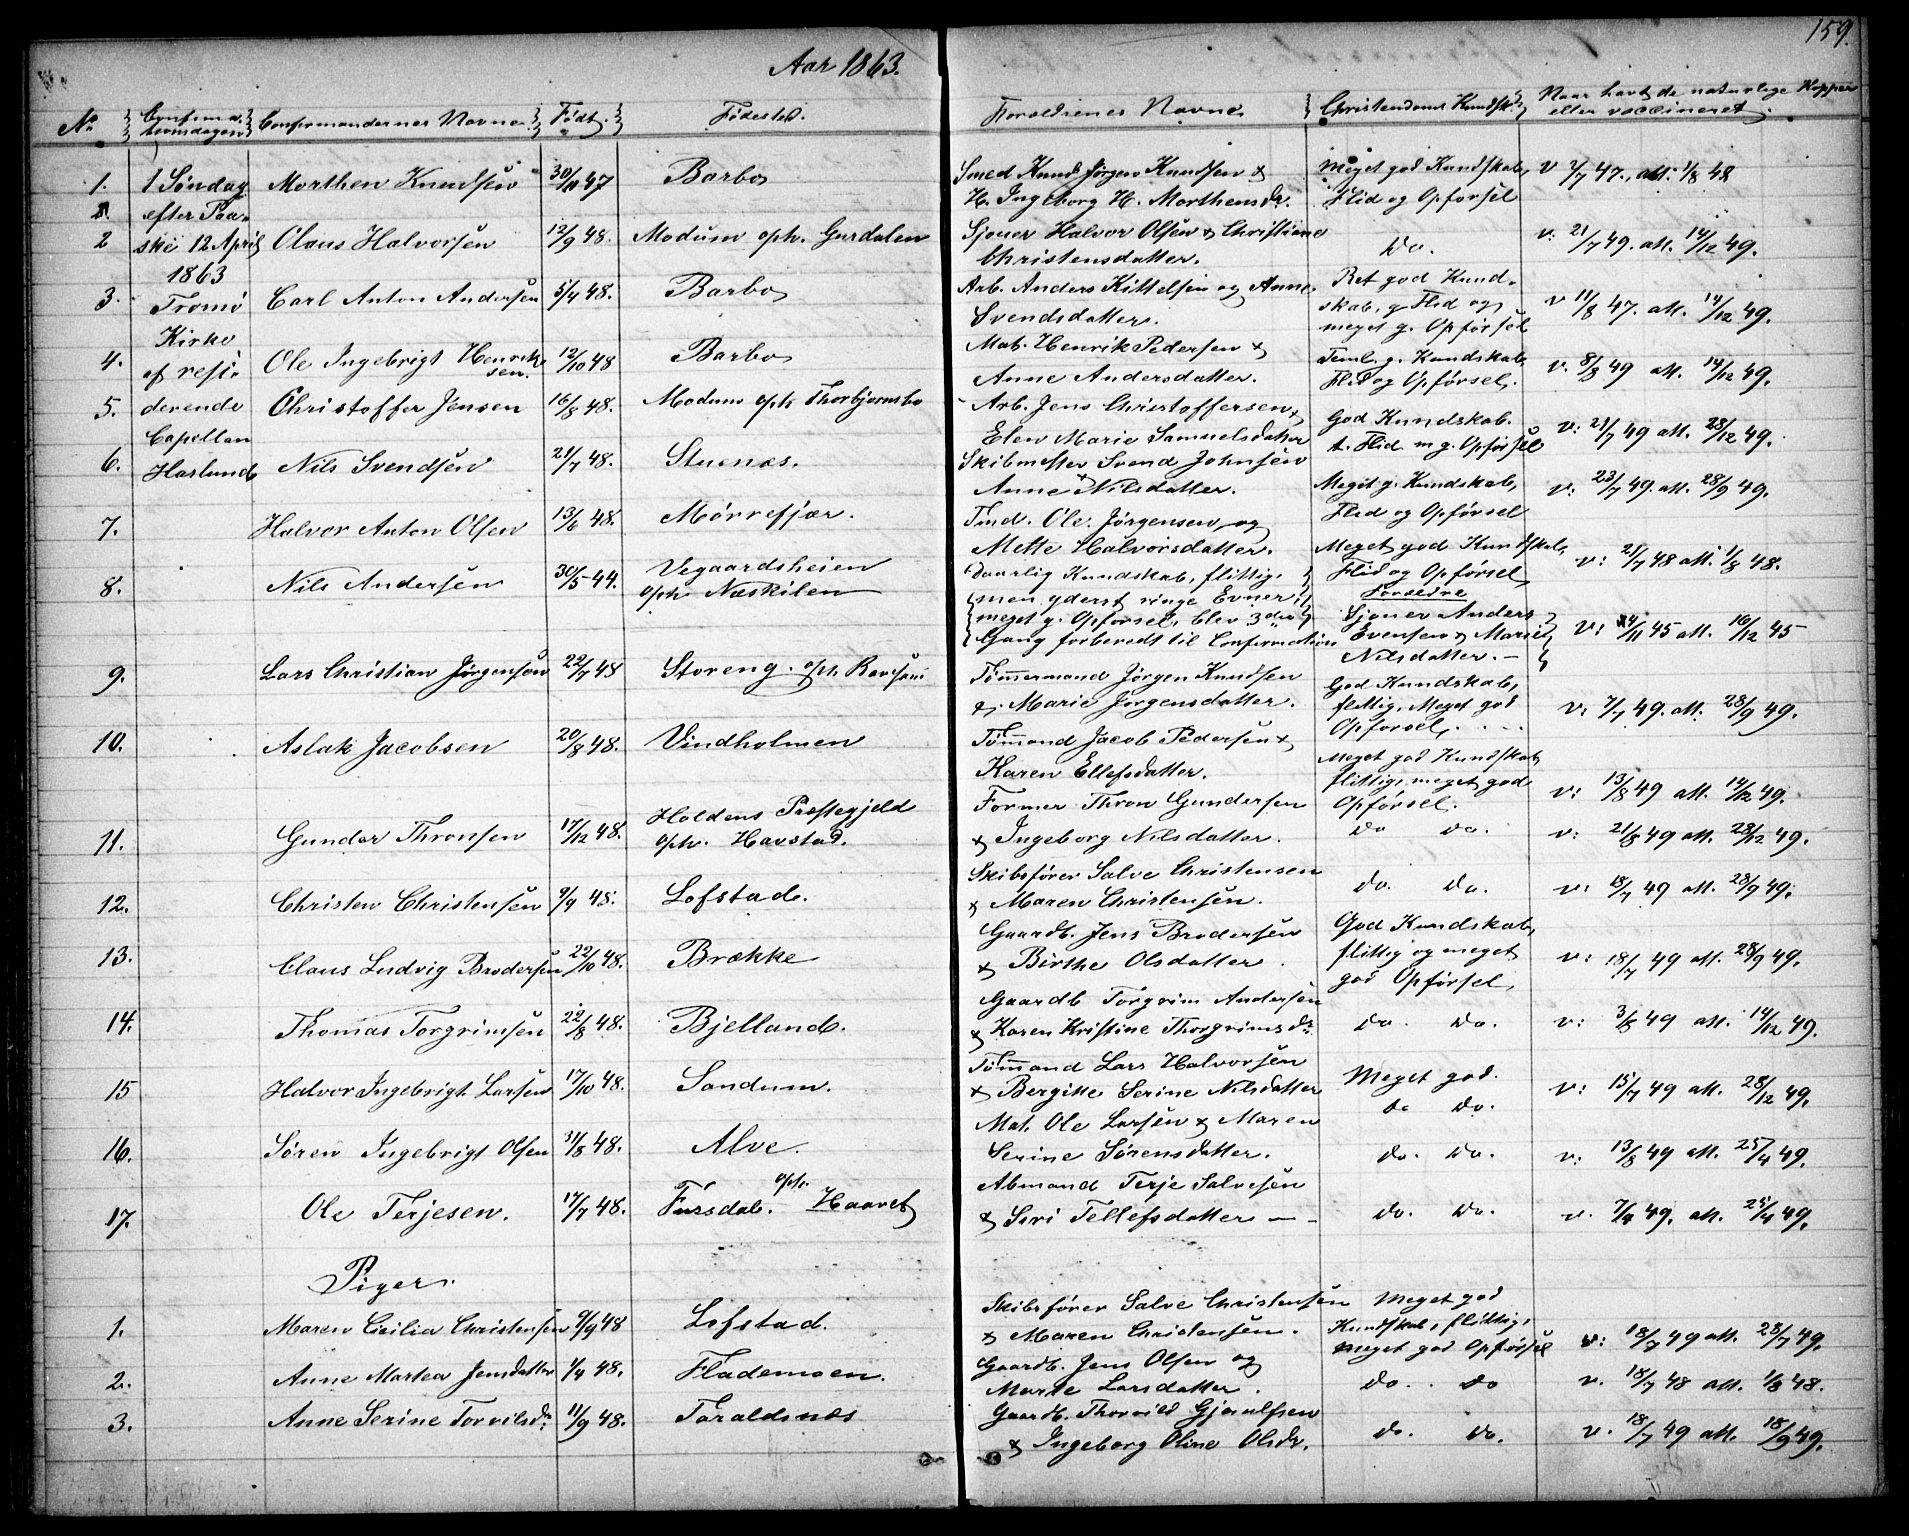 159.
Aar 1863.
No Confirmationsdagen Confirmandernes Navne. Født. Fødested. Forældrenes Navne Christendoms Kundsk. Naar havt de naturlige Kopper eller vaccineret.
1. 1 Søndag Morthen Knudsen 30/10 47 Barbo Smed Knud Jørgen Knudsen & Meget god Kundskab, V 7/7 47. att. 1/8 48
efter Paa- H. Ingeborg H. Morthensdr. Flid og Opførsel
2 ske 12 April Claus Halvorsen 12/9 48. Modum oph. Gurdalen Sjouer Halvor Olsen & Christiane Do. v: 21/7 49. att. 14/12 49.
1863 Christensdatter.
3. Tromø Carl Anton Andersen 5/4 48. Barbo Arb. Anders Kittelsen og Anne Ret god Kund- v 11/8 47. att. 14/12 49.
Svendsdatter. skab, g Flid og
meget g. Opførsel
Kirke
4. af resi- Ole Ingebrigt Henriksen. 12/10 48 Barbo Mat. Henrik Pedersen & Teml. g. Kundskab v. 8/8 49 att. 14/12 49.
Anne Andersdatter. Flid og Opførsel.
5. derende Christoffer Jensen 16/8 48. Modum oph Thorbjørnsbo Arb. Jens Christoffersen & God Kundskab. v: 21/7 49 att. 28/12 49.
Capellan Elen Marie Samuelsdatter t. Flid m g. Opførsel
6. Haslund Nils Svendsen 21/7 48. Stuenæs. Skibmester Svend Johnsen Meget g. Kundskab, v: 23/7 49. att. 28/9 49.
& Anne Nilsdatter. Flid og Opførsel
7. Halvor Anton Olsen 13/6 48. Mørrefjær. Tmd. Ole Jørgensen og Meget god Kundskab, v: 21/7 48 att. 1/8 48.
Mette Halvorsdatter. Flid og Opførsel
8. Nils Andersen 30/5 44. Vegaardsheien daarlig Kundskab, flittig, Forældre
oph. Næskilen men yderst ringe Evner, Sjouer Anders v: 24/11 45 att. 16/12 45
meget g. Opførsel, blev 3die Evensen & Marie
Gang forberedt til Confirmation Nilsdatter. —
9. Lars Christian Jørgensen 22/7 48 Storeng. oph. Tømmermand Jørgen Knudsen God Kundskab, v: 7/7 49. att. 28/9 49.
&. Marie Jørgensdatter. flittig, Meget god
Opførsel.
10. Aslak Jacobsen 20/8 48. Vindholmen Tømmand Jacob Pedersen & Meget god Kundskab, v: 13/8 49 att. 14/12 49.
Karen Ellefsdatter. flittig, meget god
Opførsel.
11. Gunder Thronsen 17/12 48. Holdens Præstegjeld Former Thron Gundersen do do. v: 21/8 49 att. 28/12 49.
oph. Havstad. & Ingeborg Nilsdatter.
12. Christen Christensen 9/9 48. Lofstad. Skibsfører Salve Christensen do. do. v: 18/7 49 att. 28/9 49.
& Maren Christensen.
13. Claus Ludvig Brodersen 22/10 48. Brække Gaardb. Jens Brodersen God Kundskab, v: 18/7 49 att. 28/9 49.
& Birthe Olsdatter. flittig og meget
god Opførsel,
14. Thomas Torgrimsen 22/8 48. Bjelland. Gaardb Torgrim Andersen do. do. v: 3/8 49 att. 14/12 49.
& Karen Kristine Thorgrimsdr.
15 Halvor Ingebrigt Larsen 17/10 48. Sandum. Tømmand Lars Halvorsen Meget god. v: 15/7 49 att. 28/12 49.
& Bergitte Serine Nilsdatter do do.
16. Søren Ingebrigt Olsen 31/8 48. Alve. Mat. Ole Larsen & Maren do. do. v: 13/8 49 att. 25/4 49.
Serine Sørensdatter.
17. Ole Terjesen. 17/7 48. oph. Haavet Abmand Terje Salvesen do. do. v. 7/4 49. att. 25/4 49.
& Siri Tellefsdatter — -
Piger.
1. Maren Cicilia Christensen 9/9 48 Lofstad. Skibsfører Salve Christensen Meget god v: 18/7 49 att. 28/7 49.
& Maren Christensen. Kundskab, flittig,
meget god Opførsel
2. Anne Martea Jensdatter 1/4 48. Flademoen. Gaardb. Jens Olsen og do. do v. 18/7 48 att. 1/8 48.
Marte Larsdatter.
3. Anne Serine Torvilsdr. 11/9 48. Taraldsnæs Gaardb. Thorvild Gjeruldsen do. do. v. 18/7 49 att. 18/9 49.
& Ingeborg Oline Olsdr.